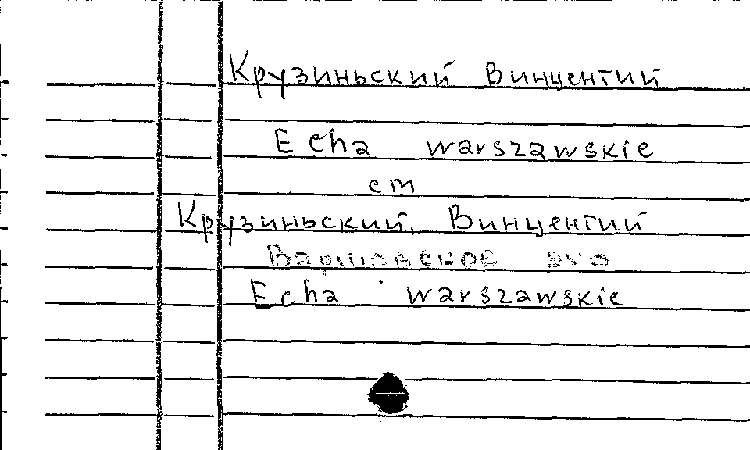 Крузиньский Винцентий
Echa warszawskie
см
Крузиньский, Винцентий
Варшавское эхо
Echa warszawskie